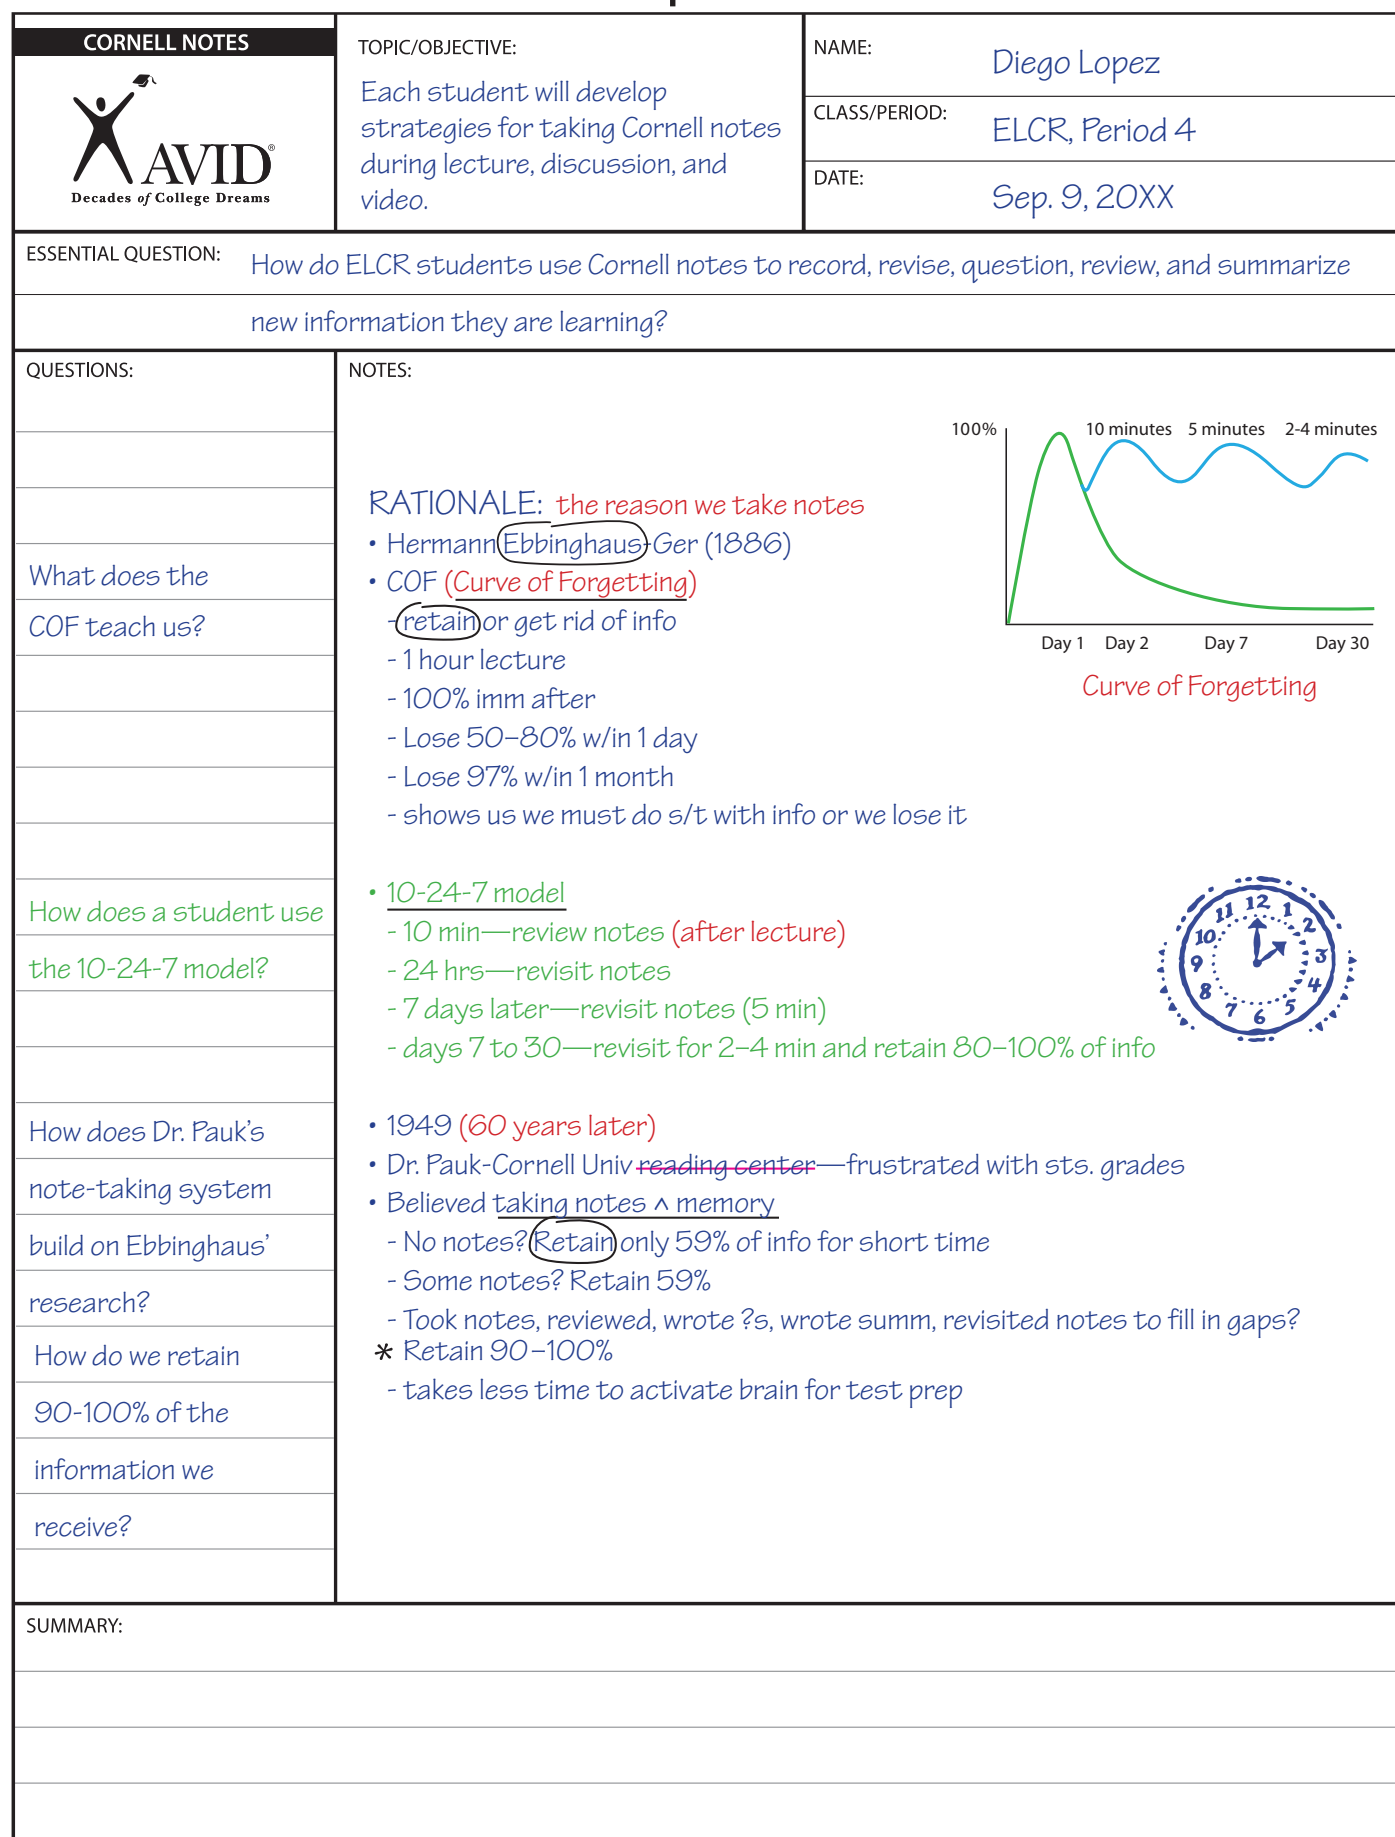 CORNELL NOTES
AVID®
Decades of College Dreams
TOPIC/OBJECTIVE:
Each student will develop
strategies for taking Cornell notes
during lecture, discussion, and
video.
NAME: Diego Lopez
CLASS/PERIOD: ELCR, Period 4
DATE: Sep. 9, 20XX
ESSENTIAL QUESTION: How do ELCR students use Cornell notes to record, revise, question, review, and summarize
new information they are learning?
QUESTIONS:
What does the
COF teach us?
How does a student use
the 10-24-7 model?
How does Dr. Pauk's
note-taking system
build on Ebbinghaus'
research?
How do we retain
90-100% of the
information we
receive?
NOTES:
100% 10 minutes 5 minutes 2-4 minutes
Day 1 Day 2 Day 7 Day 30
Curve of Forgetting
RATIONALE: the reason we take notes
• Hermann Ebbinghaus-Ger (1886)
• COF (Curve of Forgetting)
- retain or get rid of info
- 1 hour lecture
- 100% imm after
- Lose 50–80% w/in 1 day
- Lose 97% w/in 1 month
- shows us we must do s/t with info or we lose it
• 10-24-7 model
- 10 min—review notes (after lecture)
- 24 hrs—revisit notes
- 7 days later—revisit notes (5 min)
- days 7 to 30—revisit for 2–4 min and retain 80–100% of info
12 1 2 3 4 5 6 7 8 9 10 11
• 1949 (60 years later)
• Dr. Pauk-Cornell Univ reading center—frustrated with sts. grades
• Believed taking notes ^ memory
- No notes? Retain only 59% of info for short time
- Some notes? Retain 59%
- Took notes, reviewed, wrote ?s, wrote summ, revisited notes to fill in gaps?
* Retain 90–100%
- takes less time to activate brain for test prep
SUMMARY: